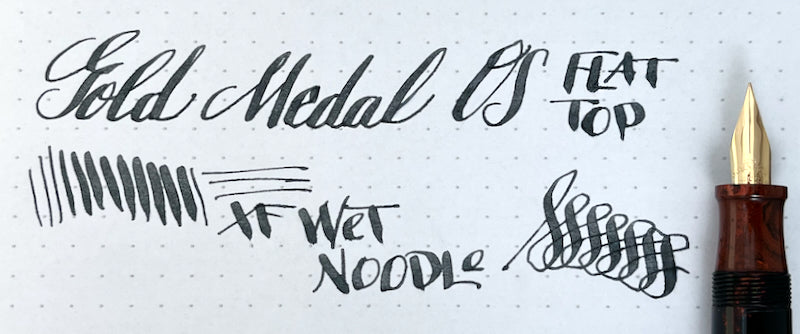 Gold Medal OS FLAT
TOP
XF WeT
NOODLe